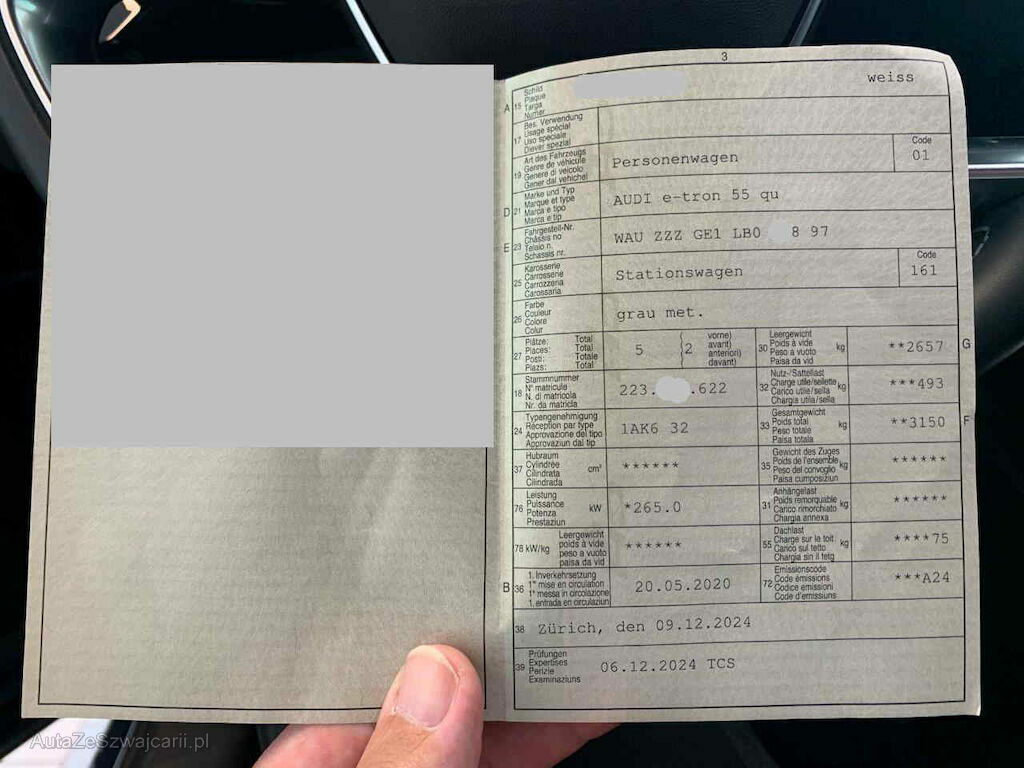 3
A 15 Schild
Plaque
Targa
Numer
weiss
17 Bes. Verwendung
Usage spécial
Uso speciale
Diever spezial
19 Art des Fahrzeugs
Genre de véhicule
Genere di veicolo
Gener dal vehichel
Personenwagen
Code
01
D 21 Marke und Typ
Marque et type
Marca e tipo
Marca e tip
AUDI e-tron 55 qu
E 23 Fahrgestell-Nr.
Châssis no
Telaio n.
Schassis nr.
WAU ZZZ GE1 LB0 8 97
25 Karosserie
Carrosserie
Carrozzeria
Carossaria
Stationswagen
Code
161
26 Farbe
Couleur
Colore
Colur
grau met.
27 Plätze: Total
Places: Total
Posti: Totale
Plazs: Total
5 (2 vorne)
avant)
anteriori)
davant)
30 Leergewicht
Poids à vide kg
Peso a vuoto
Paisa da vid
**2657 G
18 Stammnummer
N° matricule
N. di matricola
Nr. da matricla
223. .622
32 Nutz-/Sattellast
Charge utile/sellette kg
Carico utile/sella
Chargia utila/sella
***493
24 Typengenehmigung
Réception par type
Approvazione del tipo
Approvaziun dal tip
1AK6 32
33 Gesamtgewicht
Poids total kg
Peso totale
Paisa totala
**3150 F
37 Hubraum
Cylindrée cm³
Cilindrata
Cilindrada
******
35 Gewicht des Zuges
Poids de l'ensemble kg
Peso del convoglio
Paisa cumposiziun
******
76 Leistung
Puissance kW
Potenza
Prestaziun
*265.0
31 Anhängelast
Poids remorquable kg
Carico rimorchiato
Chargia annexa
******
78 kW/kg Leergewicht
poids à vide
peso a vuoto
paisa da vid
******
55 Dachlast
Charge sur le toit kg
Carico sul tetto
Chargia sin il tetg
****75
B 36 1. Inverkehrsetzung
1re mise en circulation
1a messa in circolazione
1. entrada en circulaziun
20.05.2020
72 Emissionscode
Code émissions
Codice emissioni
Code d'emissiuns
***A24
38 Zürich, den 09.12.2024
39 Prüfungen
Expertises
Perizie
Examinaziuns
06.12.2024 TCS
AutaZeSzwajcarii.pl